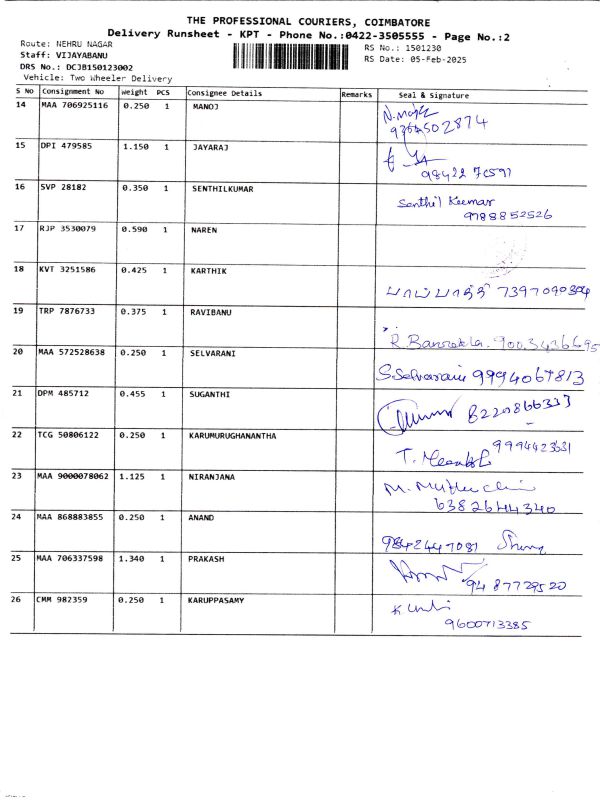 THE PROFESSIONAL COURIERS, COIMBATORE
Delivery Runsheet - KPT - Phone No.:0422-3505555 - Page No.:2
Route: NEHRU NAGAR
RS No.: 1501230
Staff: VIJAYABANU
RS Date: 05-Feb-2025
DRS No.: DCJB150123002
Vehicle: Two Wheeler Delivery
S No Consignment No Weight PCS Consignee Details Remarks Seal & Signature
14 MAA 706925116 0.250 1 MANOJ N.Manoj
9364502874
15 DPI 479585 1.150 1 JAYARAJ
98422 70591
16 SVP 28182 0.350 1 SENTHILKUMAR Senthil Kumar
9788852526
17 RJP 3530079 0.590 1 NAREN
18 KVT 3251586 0.425 1 KARTHIK பாப்பாத்தி 7397090304
19 TRP 7876733 0.375 1 RAVIBANU R. 9003436695
20 MAA 572528638 0.250 1 SELVARANI S.Selvarani 9994067813
21 DPM 485712 0.455 1 SUGANTHI 8220866333
22 TCG 50806122 0.250 1 KARUMURUGHANANTHA 9994423631
T.
23 MAA 9000078062 1.125 1 NIRANJANA M.
6382644340
24 MAA 868883855 0.250 1 ANAND 9842447081
25 MAA 706337598 1.340 1 PRAKASH
9487729520
26 CMM 982359 0.250 1 KARUPPASAMY K
9600713385